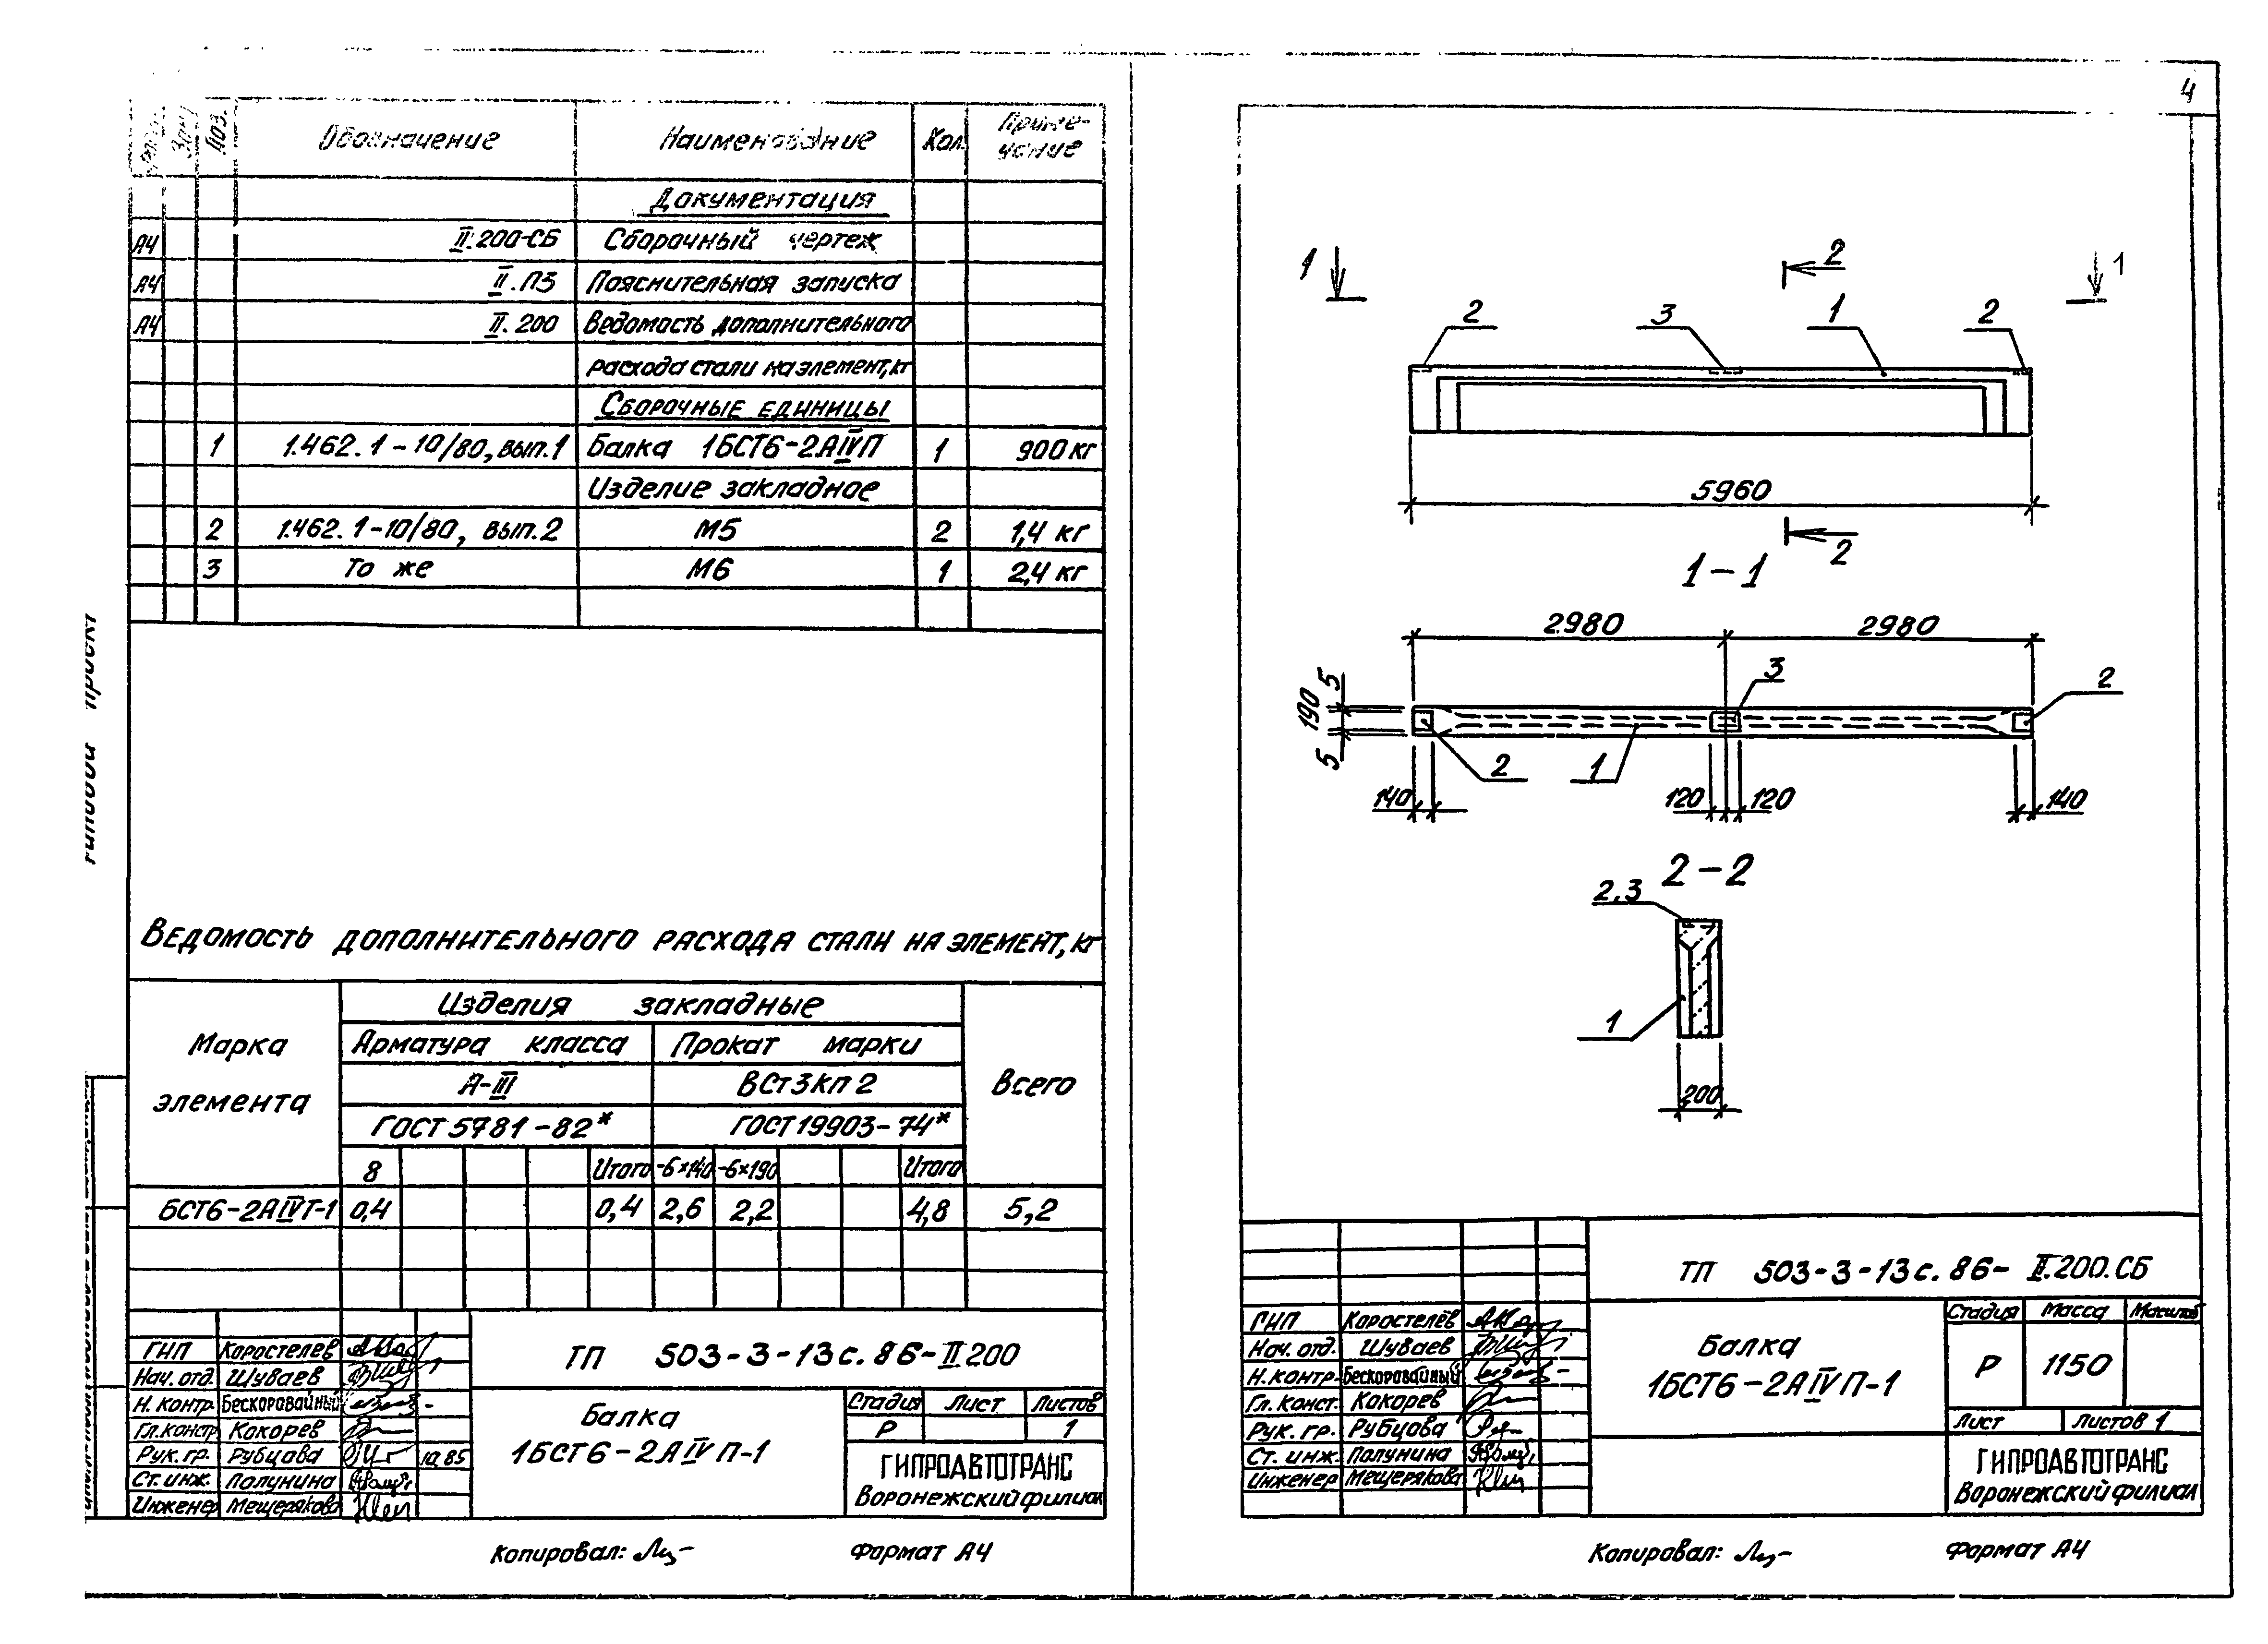 4
Поз. Обозначение Наименование Кол. Приме-
чание
Документация
А4 II.200-СБ Сборочный чертеж
А4 II.ПЗ Пояснительная записка
А4 II.200 Ведомость дополнительного
расхода стали на элемент, кг
Сборочные единицы
1 1.462.1-10/80, вып.1 Балка 1БСТ6-2АIVП 1 900 кг
Изделие закладное
2 1.462.1-10/80, вып.2 М5 2 1,4 кг
3 То же М6 1 2,4 кг
проект
Ведомость дополнительного расхода стали на элемент, кг
Марка
элемента
Изделия закладные
Арматура класса Прокат марки
А-III ВСт3кп2 Всего
ГОСТ 5781-82* ГОСТ 19903-74*
8 Итого -6×140 -6×190 Итого
БСТ6-2АIVТ-1 0,4 0,4 2,6 2,2 4,8 5,2
ГНП Коростелёв
Нач. отд. Шуваев
Н. контр. Бескоровайный
Гл. констр Кокорев
Рук. гр. Рубцова 10.85
Ст. инж. Полунина
Инженер Мещерякова
ТП 503-3-13с.86-II 200
Балка
1БСТ6-2АIVП-1
Стадия Лист Листов
Р 1
ГИПРОАВТОТРАНС
Воронежский филиал
Копировал: Формат А4
1 2 1
2 3 1 2
5960
2
1-1
2980 2980
5 190 5
3 2
2 1
140 120 120 140
2-2
2,3
1
200
ТП 503-3-13с.86- II.200.СБ
ГНП Коростелёв
Нач. отд. Шуваев
Н. контр. Бескоровайный
Гл. конст. Кокорев
Рук. гр. Рубцова
Ст. инж. Полунина
Инженер Мещерякова
Балка
1БСТ6-2АIVП-1
Стадия Масса Масштаб
Р 1150
Лист Листов 1
ГИПРОАВТОТРАНС
Воронежский филиал
Копировал: Формат А4